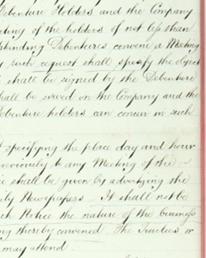 Debenture Holders and the Company
eting of the holders of not less than
standing Debentures convene a Meeting
y such request shall specify the object
shall be signed by the Debenture
hall be served on the Company and the
Debenture holders can concur in such
t specifying the place day and hour
reviously to any Meeting of the
ce shall be given by advertizing the
ly Newspapers - It shall not be
uch Notice the nature of the business
ng thereby convened. The Trustees or
may attend.